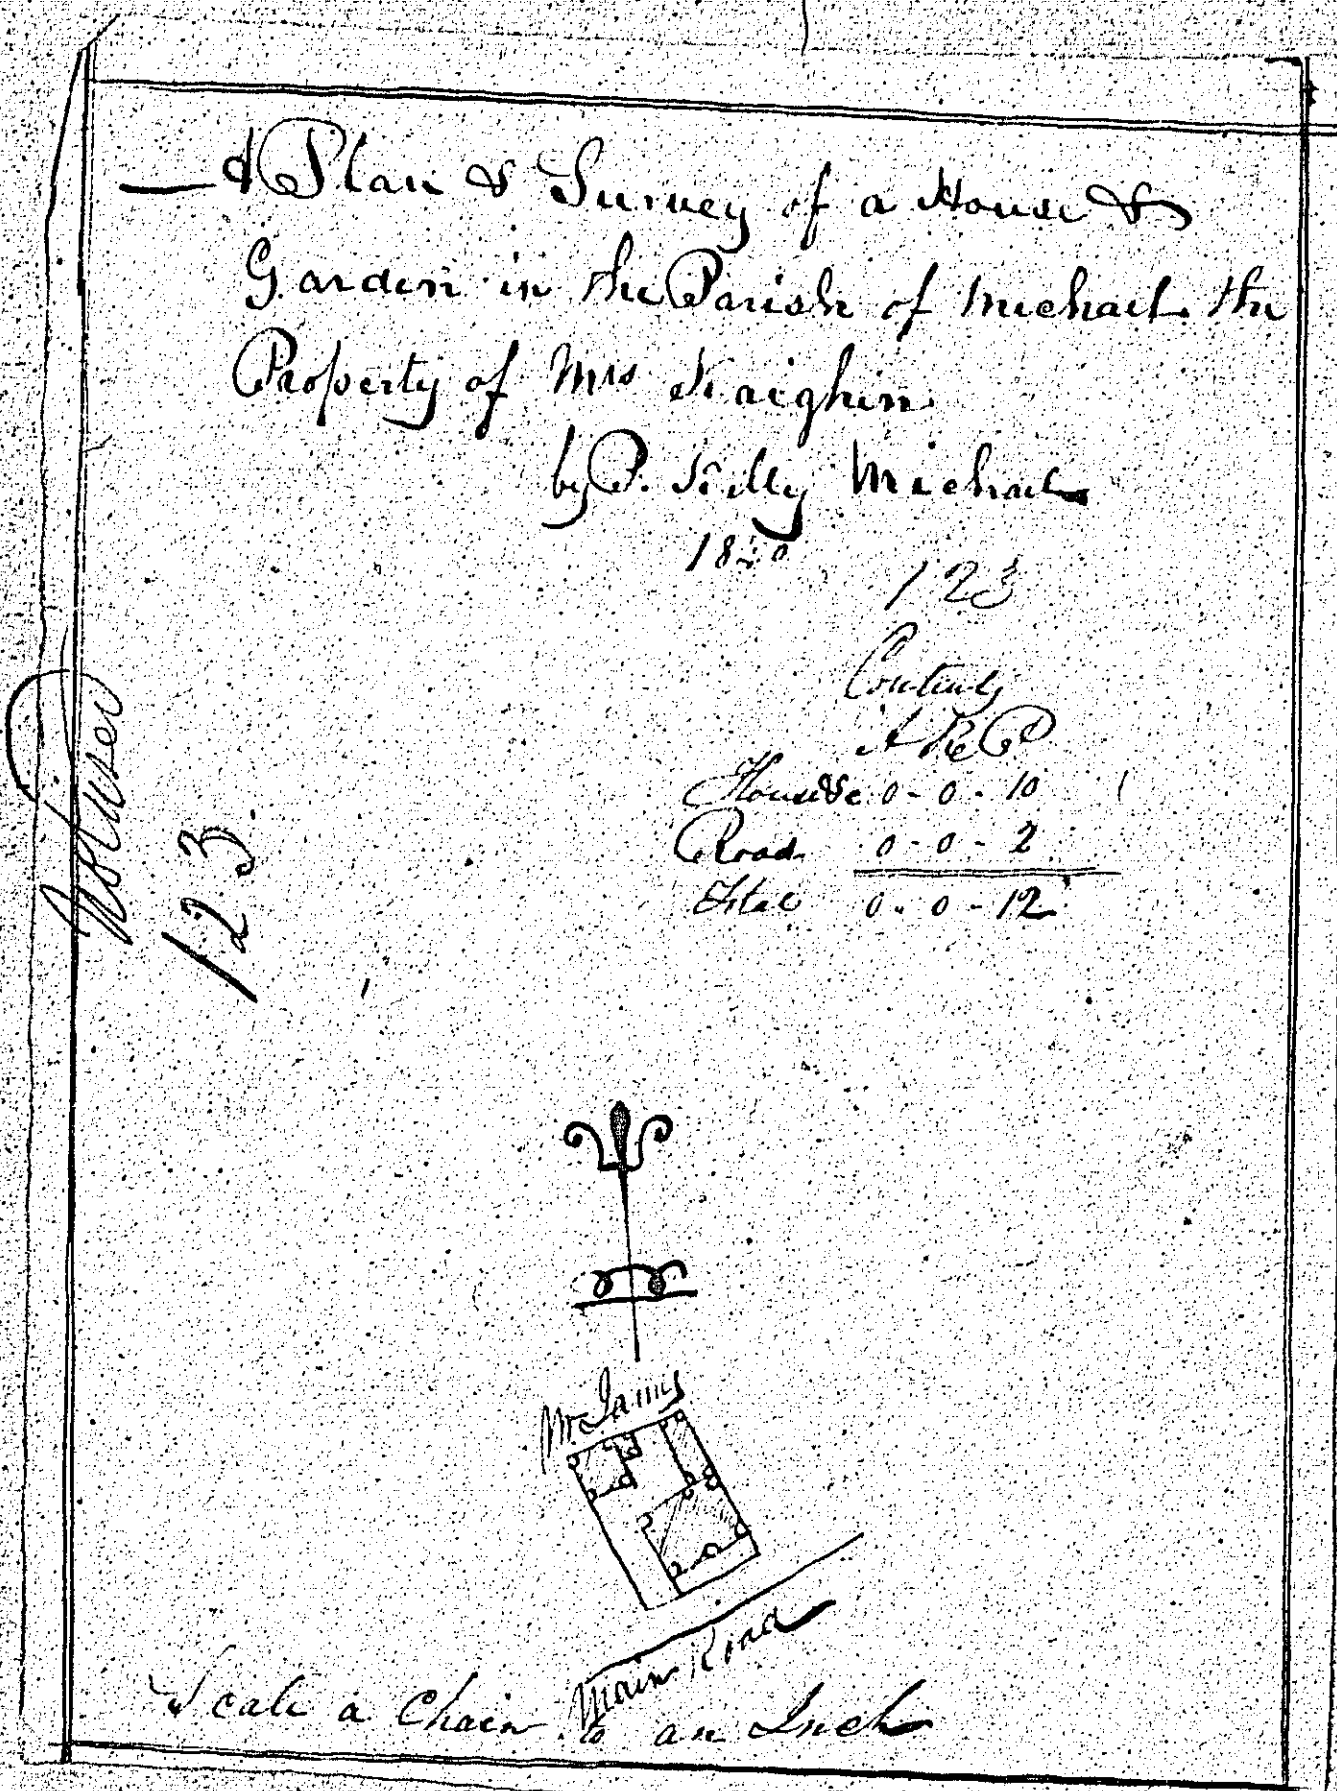 A Plan & Survey of a House &
Garden in the Parish of Michael the
Property of Mrs Kaighin
by P. Kelly Michael
123
Contents
A R P
House &c 0 - 0 - 10
Road 0 - 0 - 2
Total 0 - 0 - 12
123
Mr James
Main Road
Scale a Chain to an Inch